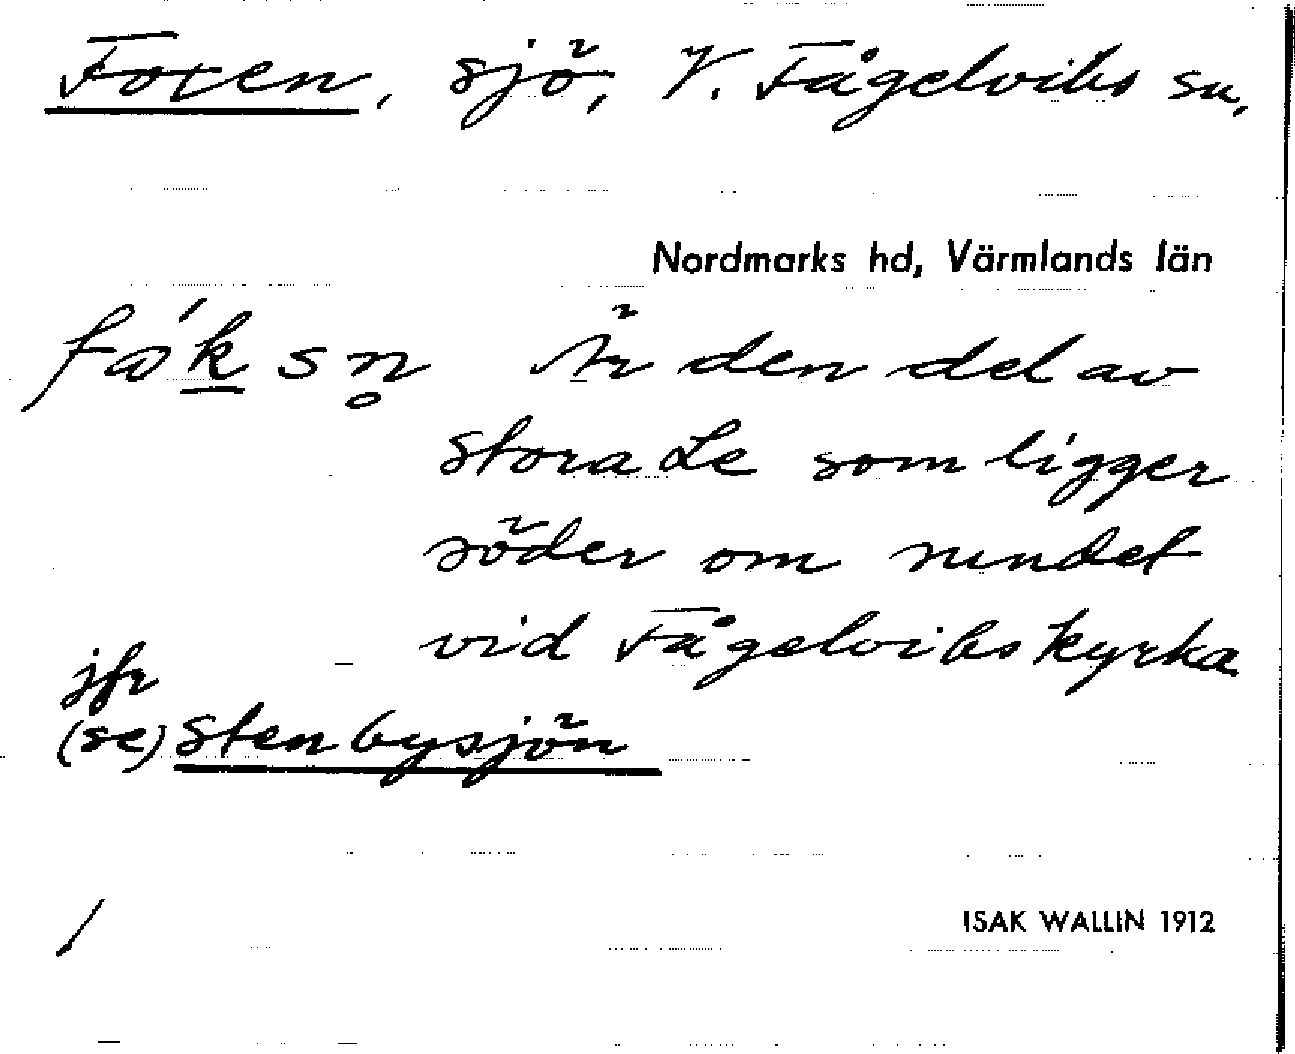 Foxen, sjö, V. Fågelviks sn,
Nordmarks hd, Värmlands län
Är den del av
stora Le som ligger
söder om sundet
vid Fågelviks kyrka
jfr
(se) Stenbysjön
ISAK WALLIN 1912